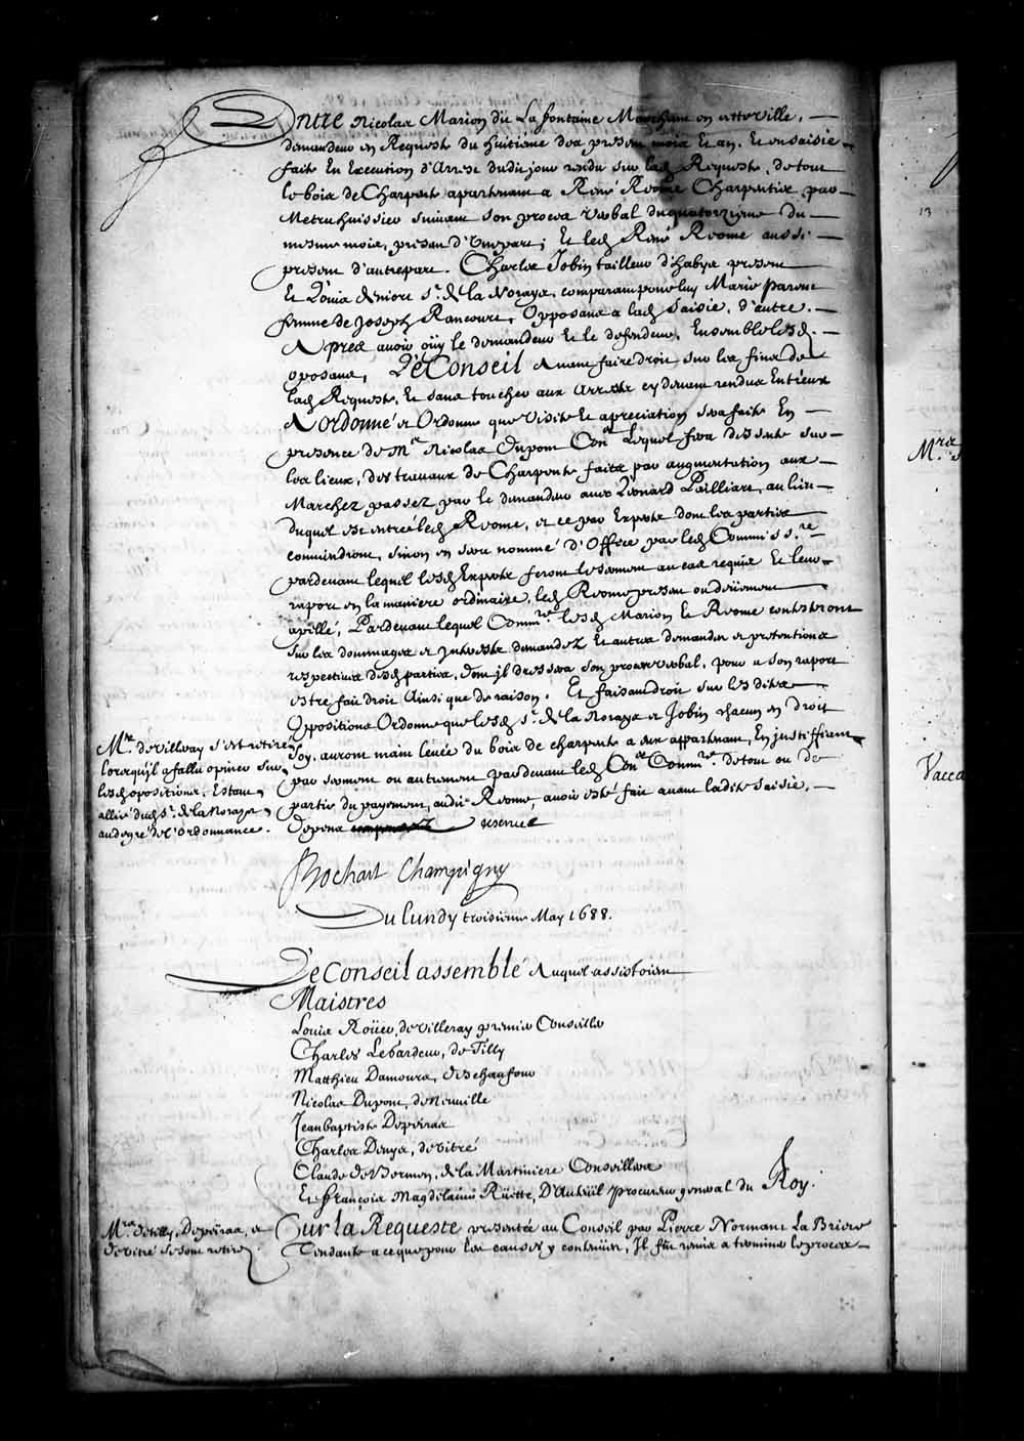 Entre Nicolas Marion dit La fontaine Marchand en cette ville,
demandeur en Requeste du huitieme des presens mois et an, et en saisie
faite En Execution d'Arrest dudit jour rendu sur lad Requeste, de tout
le bois de Charpente apartenant a René Reome Charpentier, par
Metru huissier suivant son procez verbal du quatorzieme du
mesme mois, present d'unepart; Et led René Reome aussi
present d'autrepart. Charles Jobin tailleur d'habys present
Et Louis deniort sr. de la Noraye, comparant pour luy Marie parent
femme de Joseph Rancourt, Opposans a lad saisie, d'autre.
Apres avoir oüy le demandeur et le defendeur, Ensemble lesd.
oposans, Le Conseil avant faire droit sur les fins de
lad Requeste, Et sans toucher aux Arrests cy devant rendus Entreux
A Ordonné et Ordonne que visite et apreciation sera faite En
presence de Mr Nicolas Dupont Coner Lequel fera dessente sur
les lieux, des travaux de Charpente faits par augmentation aux
Marchez passez par le demandeur avec Leonard Pailliart, au lieu
duquel est entré led Reome, et ce par Experts dont les parties
conviendront, sinon en sera nommé d'Office par led Commissre
pardevant lequel lesd Experts feront le serment au cas requis Et leur
raport en la maniere ordinaire, led Reome present ou deüement
apellé, Pardevant lequel Commre lesd Marion Et Reome contesteront
sur les dommages et Interests demandez Et autres demandes et pretentions
respectives desd parties, dont il dressera son procez verbal, pour a son raport
estre fait droit Ainsi que de raison. Et faisant droit sur lesdites
Oppositions Ordonne que lesd sr. de la Noraye et Jobin chacun en droit
soy, auront main levée du bois de charpente a eux appartenant, En justiffient
par serment ou autrement pardevant led Coner Commre. de tout ou de
partie du payement, audit Reome, avoir esté fait avant ladite saisie,
Depens reservez
Mr. de villeray s'est retiré
lorsqu'il a fallu opiner sur
lesd opositions, Estant
allié dud sr. de la Noraye
au degré de l'ordonnance.
Bochart Champigny
Du lundy troisieme May 1688.
Le Conseil assemblé Auquel assistoient
Maistres
Louis Roüer, de villeray premier Conseiller
Charles Lebardeur, de Tilly
Matthieu Damours, deschaufour
Nicolas Dupont, de Neuville
Jean baptiste Depeiras
Charles Denys, de vitré
Claude de Bermen, de la Martiniere Conseillers
Et françois Magdelaine Rüette, D'Auteüil procureur general du Roy.
Mrs. de tilly, Depeiras, et
de vitré se sont retirez
Sur la Requeste presentée au Conseil par Pierre Normant La Briere
Tendante a ce que pour les causes y contenües, Il fut remis a terminer le procez
13
Mrs
Vacca